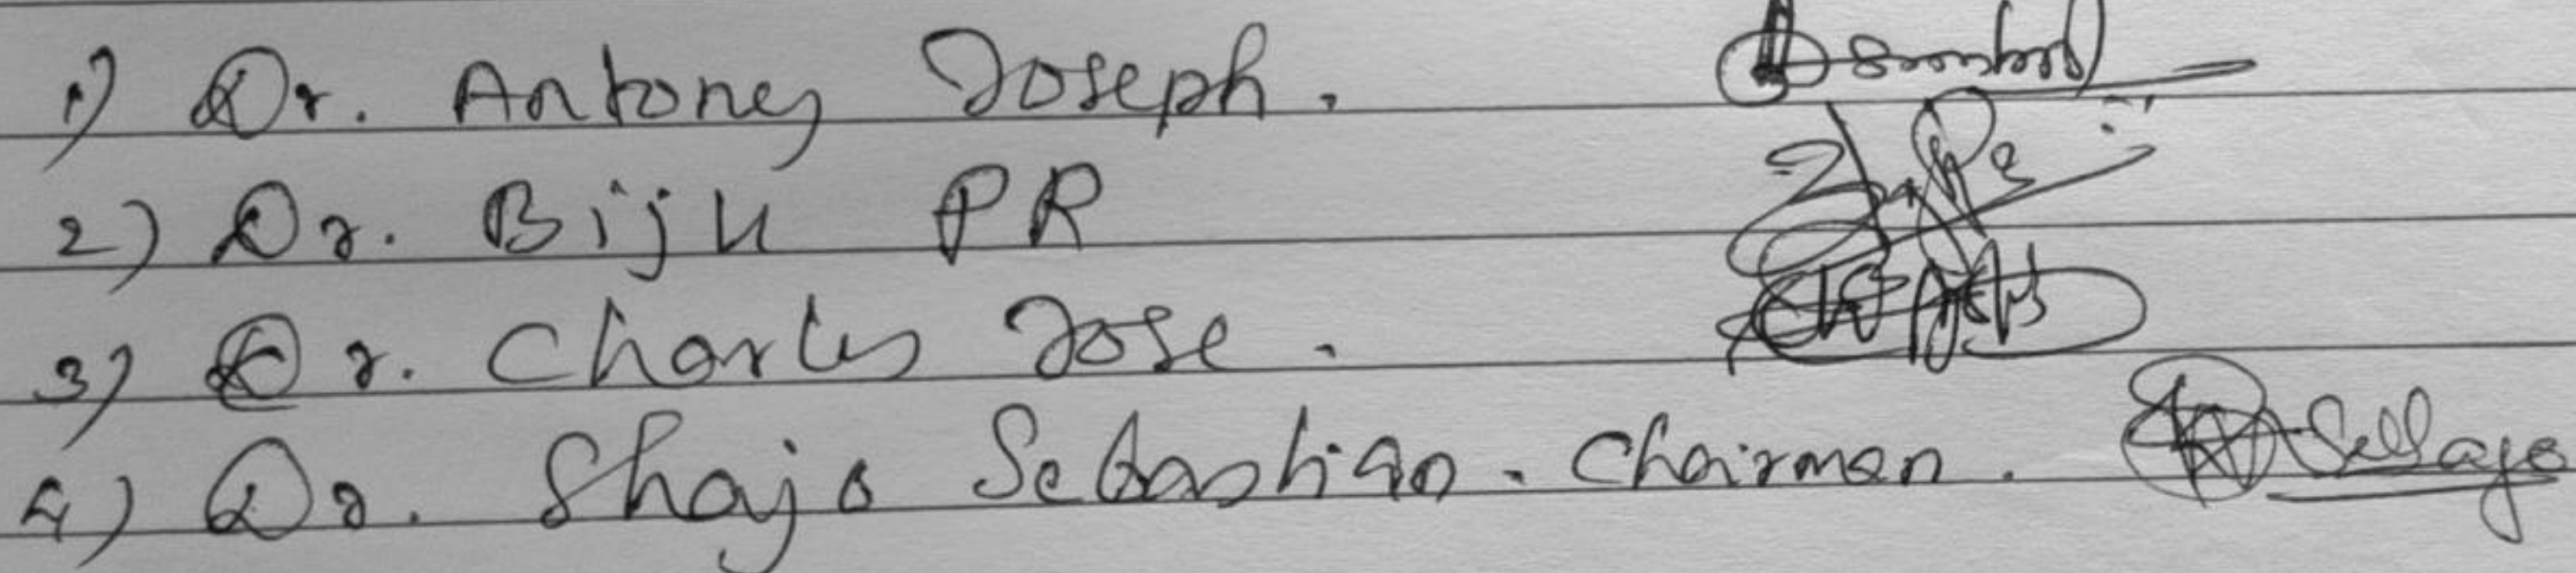 1) Dr. Antony Joseph.
2) Dr. Biju PR
3) Dr. Charles Jose.
4) Dr. Shajo Sebastian. Chairman.